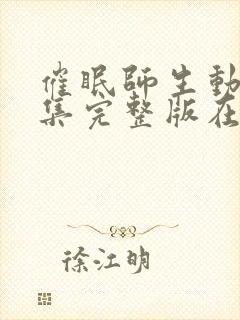 催眠師生動
集完整版在
徐江明